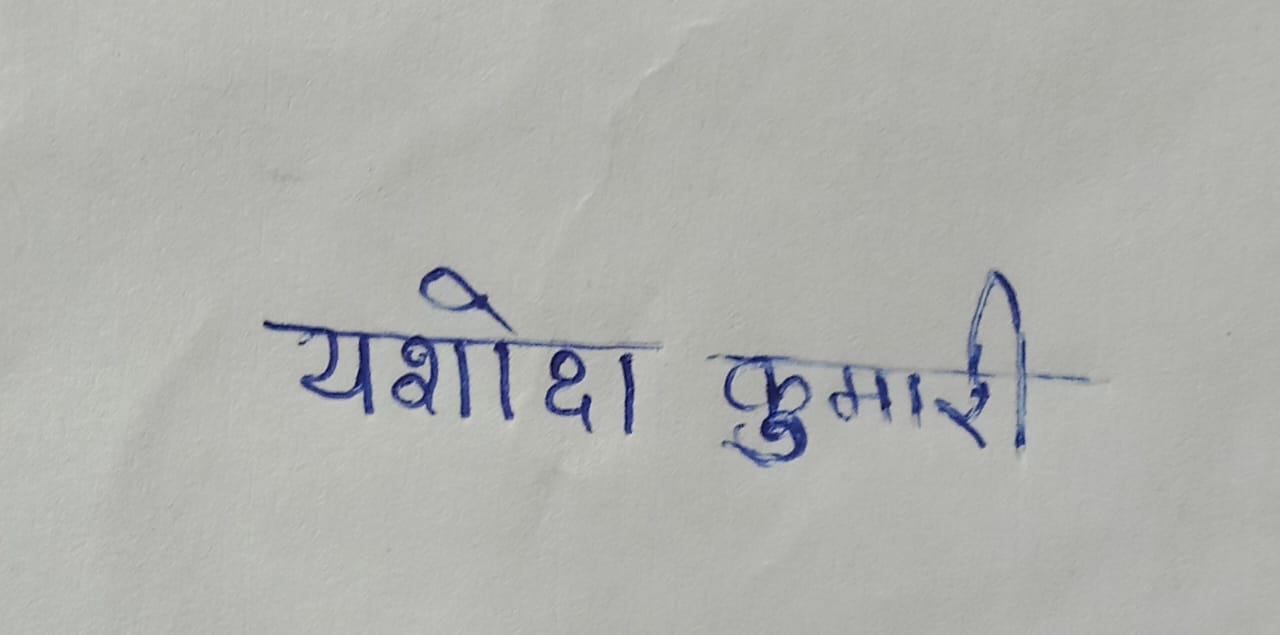 यशोदा कुमारी